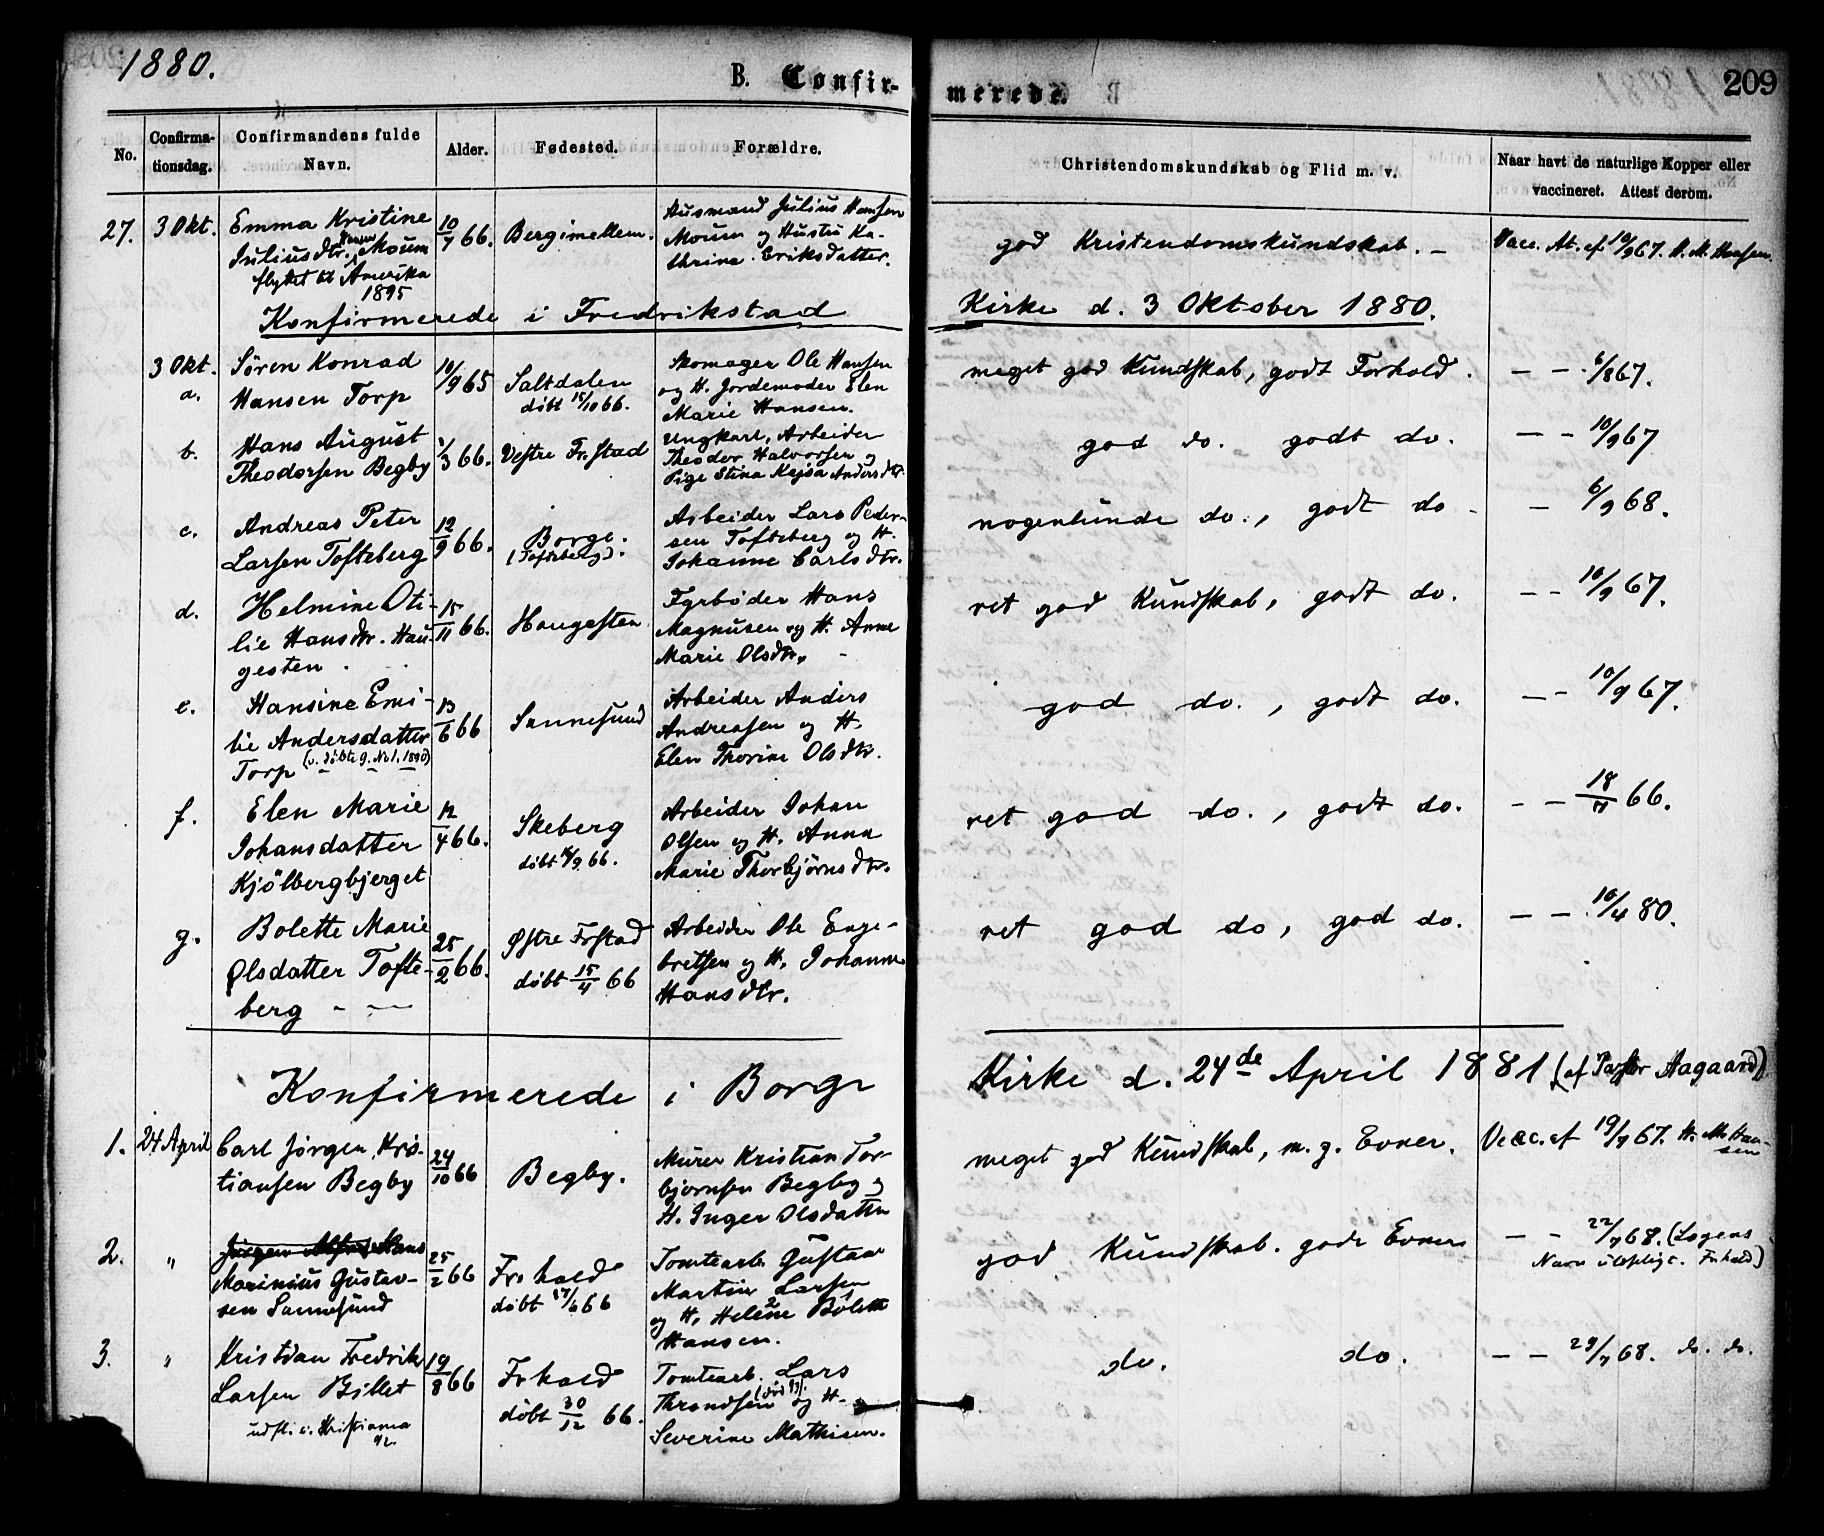 1880.
B. Confir-
merede.
209
No.
Confirma-
tionsdag.
Confirmandens fulde
Navn.
Alder.
Fødested.
Forældre.
Christendomskundskab og Flid m. v.
Naar havt de naturlige Kopper eller
vaccineret. Attest derom.
27. 3 Okt. Emma Kristine 10/7 66. Bergimellem. Husmand Julius Hansen
Juliusdtr. Moum Moum og Hustru Ka-
flyttet til Amerika thrine Eriksdatter.
1895
god Kristendomskundskab. — Vacc. At. af 10/9 67. H. M. Hansen.
Konfirmerede i Fredrikstad Kirke d. 3 Oktober 1880.
3 Okt. Søren Konrad 10/9 65 Saltdalen Skomager Ole Hansen
a. Hansen Torp døbt 15/10 66. og H. Jordemoder Elen
Marie Hansen.
meget god Kundskab, godt Forhold. — — 6/8 67.
b. Hans August 1/3 66. Vestre Fr.stad Ungkarl, Arbeider
Theodorsen Begby Theodor Halvorsen og
Pige Stina Kajsa Andersdtr.
god do. godt do. — — 10/9 67
c. Andreas Peter 12/9 66. Borge. Arbeider Lars Peder-
Larsen Tofteberg (Tofteberg). sen Tofteberg og H.
Johanne Carlsdtr.
nogenlunde do., godt do — 6/9 68.
d. Helmine Oti- 15/11 66. Haugesten Fyrbøder Hans
lie Hansdtr. Hau- Magnusen og H. Anne
gesten Marie Olsdtr.
ret god Kundskab, godt do. — — 10/9 67.
e. Hansine Emi- 13/6 66 Sannesund Arbeider Anders
lie Andersdatter Andreasen og H.
Torp (v. døbte g. No 1. 1890) Elen Thorine Olsdtr.
god do., godt do. — — 10/9 67.
f. Elen Marie 12/4 66. Skeberg Arbeider Johan
Johansdatter døbt 16/9 66. Olsen og H. Anna
Kjölbergbjerget Marie Thorbjørnsdtr.
ret god do., godt do. — — 18/7 66.
g. Bolette Marie 25/2 66. Østre Frstad Arbeider Ole Enge-
Olsdatter Tofte- døbt 15/4 66 bretsen og H. Johanne
berg — — Hansdtr.
ret god do, god do. — — 10/4 80.
Konfirmerede i Borge Kirke d. 24de April 1881 (af Pastor Aagaard)
1. 24 April Carl Jørgen Kris- 24/10 66 Begby. Murer Kristian Tor-
tiansen Begby bjørnsen Begby og
H. Inger Olsdatter
meget god Kundskab, m. g. Evner. Vacc. af 19/7 67. H. M. Han-
sen
2. " Hans 25/2 66 Fr. hald Tomtearb. Gustav
Marinius Gustav- døbt 17/6 66 Martin Larsen
sen Sannesund og H. Helene Bolette
Hansen.
god Kundskab. gode Evner — — 22/7 68. (Lægens
Navn ulæseligt. Frhald)
3. " Kristian Fredrik 19/8 66 Fr hald Tomtearb. Lars
Larsen Billet døbt 30/12 66. Thrandsen og H.
udfl. i Kristiania Severine Mathisen.
do. do. — — 29/7 68. do. do.